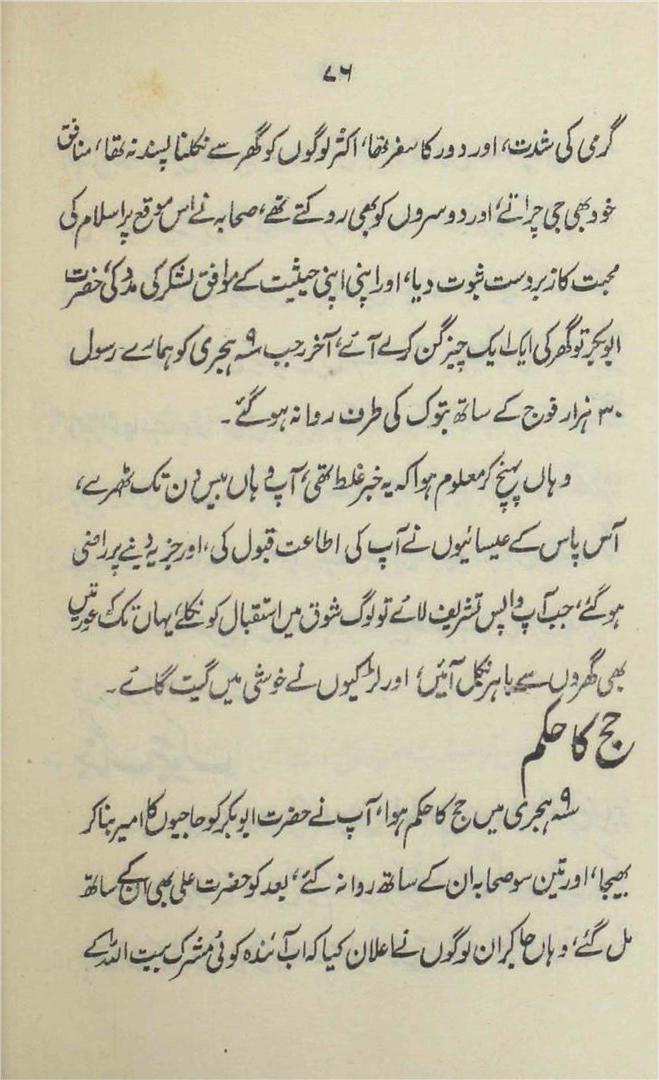 ۷۶
گرمی کی شدت، اور دور کا سفر تھا، اکثر لوگوں کو گھر سے نکلنا پسند نہ تھا، منافق
خود بھی جی چراتے، اور دوسروں کو بھی روکتے تھے، صحابہ نے اس موقع پر اسلام کی
محبت کا زبردست ثبوت دیا، اور اپنی اپنی حیثیت کے موافق لشکر کی مدد کی، حضرت
ابوبکرؓ تو گھر کی ایک ایک چیز گن کر لے آئے، آخر رجب ۹؁ ہجری کو ہمارے رسول
۳۰ ہزار فوج کے ساتھ تبوک کی طرف روانہ ہو گئے۔
وہاں پہنچ کر معلوم ہوا کہ یہ خبر غلط تھی، آپ وہاں بیس دن تک ٹھہرے،
آس پاس کے عیسائیوں نے آپ کی اطاعت قبول کی، اور جزیہ دینے پر راضی
ہو گئے، جب آپ واپس تشریف لائے تو لوگ شوق میں استقبال کو نکلے، یہاں تک عورتیں
بھی گھروں سے باہر نکل آئیں، اور لڑکیوں نے خوشی میں گیت گائے۔
حج کا حکم
۹؁ ہجری میں حج کا حکم ہوا، آپ نے حضرت ابوبکر کو حاجیوں کا امیر بنا کر
بھیجا، اور تین سو صحابہ ان کے ساتھ روانہ کئے، بعد کو حضرت علی بھی ان کے ساتھ
مل گئے، وہاں جا کر ان لوگوں نے اعلان کیا کہ اب آئندہ کوئی مشرک بیت اللہ کے